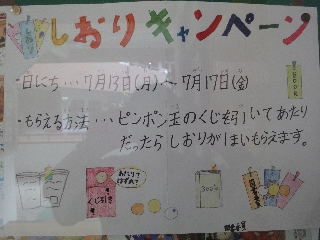 しおりキャンペーン
・日にち…7月13日(月)～7月17日(金)
・もらえる方法…ピンポン玉のくじを引いてあたり
だったらしおりが1まいもらえます。
BOOK
あたりて
はずれ?
くじ引き
BOOK
図書委員